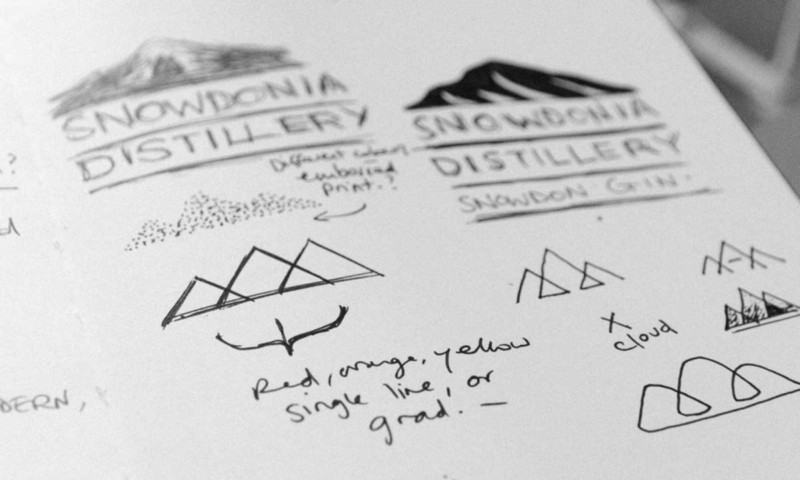 SNOWDONIA
DISTILLERY
Different when
embossed
print?
SNOWDONIA
DISTILLERY
SNOWDON GIN.
Red, orange, yellow
single line, or
grad. —
X
cloud
DERN,